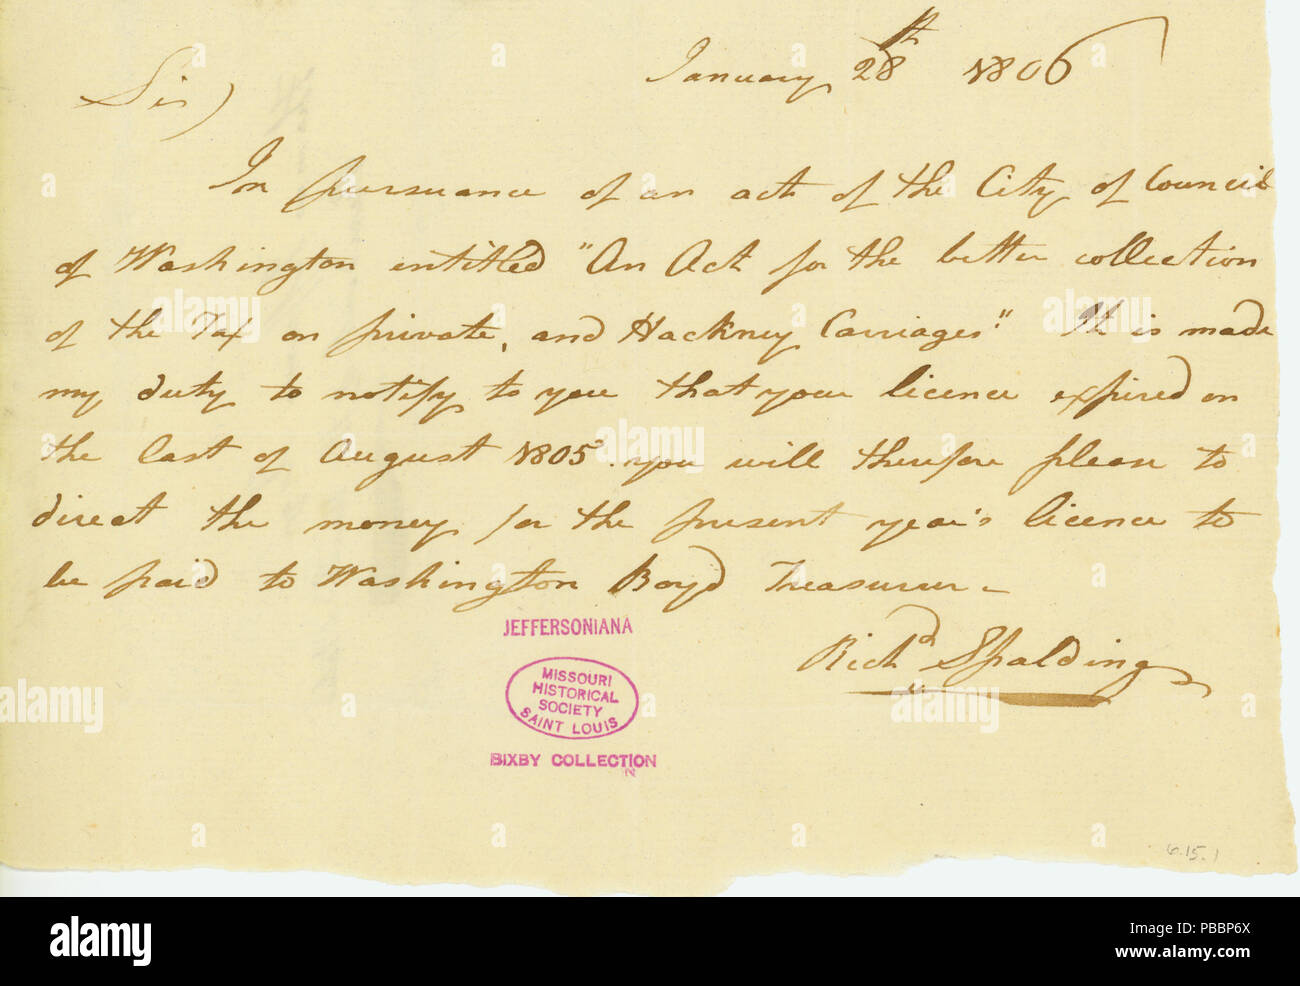 January 28th 1806
Sir)
In pursuance of an act of the City of Council
of Washington entitled "An Act for the better collection
of the Tax on private, and Hackney Carriages." It is made
my duty to notify to you that your licence expired on
the last of August 1805. you will therefore please to
direct the money for the present year's licence to
be paid to Washington Boyd Treasurer
Richd Spalding
JEFFERSONIANA
MISSOURI
HISTORICAL
SOCIETY
SAINT LOUIS
BIXBY COLLECTION
N
6.15.1
alamy
Image ID: PBBP6X
www.alamy.com